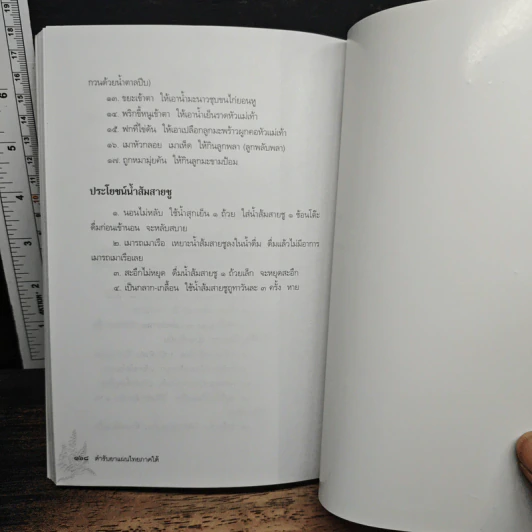 กวนด้วยน้ำตาลปีบ)
๑๓. ขยะเข้าตา ให้เอาน้ำมะนาวชุบขนไก่ยอนหู
๑๔. พริกขี้หนูเข้าตา ให้เอาน้ำเย็นราดหัวแม่เท้า
๑๕. พกที่ไข่ดัน ให้เอาเปลือกลูกมะพร้าวผูกคอหัวแม่เท้า
๑๖. เมาหัวกลอย เมาเห็ด ให้กินลูกพลา (ลูกพลับพลา)
๑๗. ถูกหมามุ่ยคัน ให้กินลูกมะขามป้อม
ประโยชน์น้ำส้มสายชู
๑. นอนไม่หลับ ใช้น้ำสุกเย็น ๑ ถ้วย ใส่น้ำส้มสายชู ๑ ช้อนโต๊ะ
ดื่มก่อนเข้านอน จะหลับสบาย
๒. เมารถเมาเรือ เหยาะน้ำส้มสายชูลงในน้ำดื่ม ดื่มแล้วไม่มีอาการ
เมารถเมาเรือเลย
๓. สะอึกไม่หยุด ดื่มน้ำส้มสายชู ๑ ถ้วยเล็ก จะหยุดสะอึก
๔. เป็นกลาก-เกลื้อน ใช้น้ำส้มสายชูถูทาวันละ ๓ ครั้ง หาย
๑๖๘ ตำรับยาแผนไทยภาคใต้